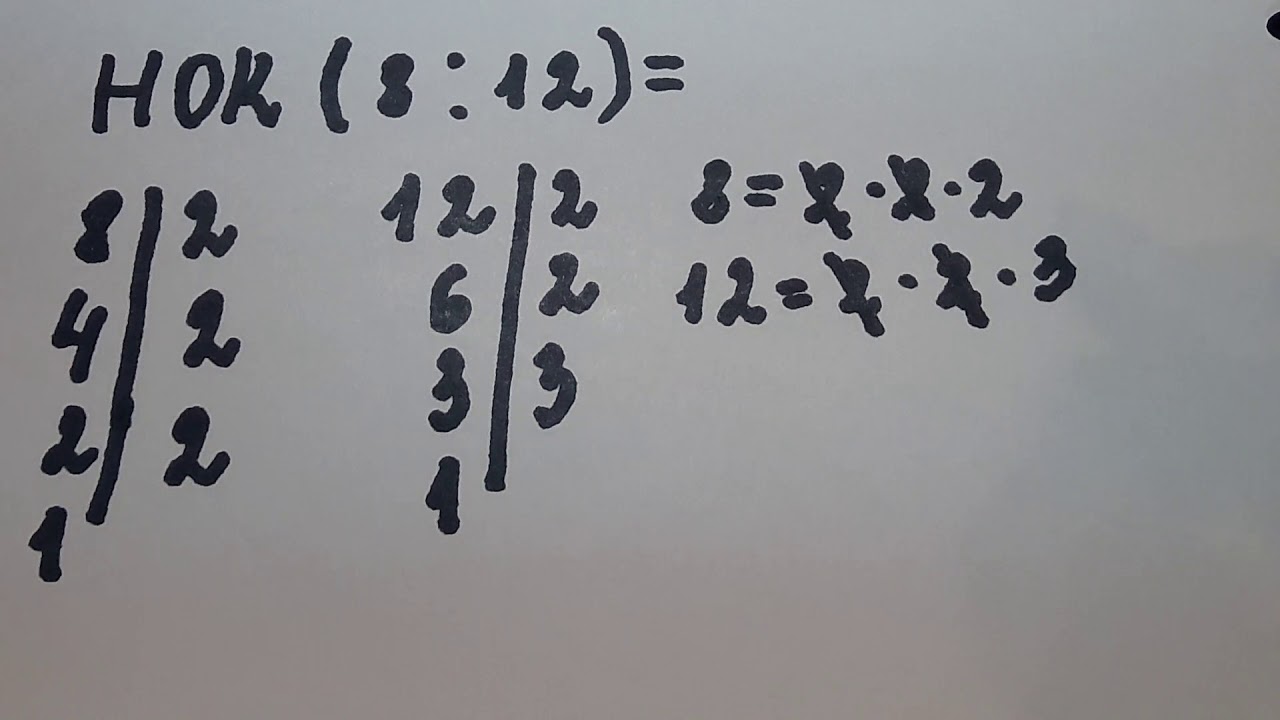 НОК (8 : 12) =
8 | 2
4 | 2
2 | 2
1
12 | 2
6 | 2
3 | 3
1
8 = 2 · 2 · 2
12 = 2 · 2 · 3